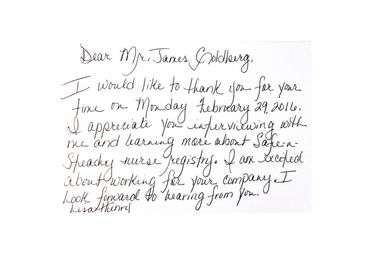 Dear Mr. James Goldberg,
I would like to thank you for your
time on Monday February 29, 2016.
I appreciate you interviewing with
me and learning more about Safe-n-
Steady nurse registry. I am excited
about working for your company. I
look forward to hearing from you.
Lisa